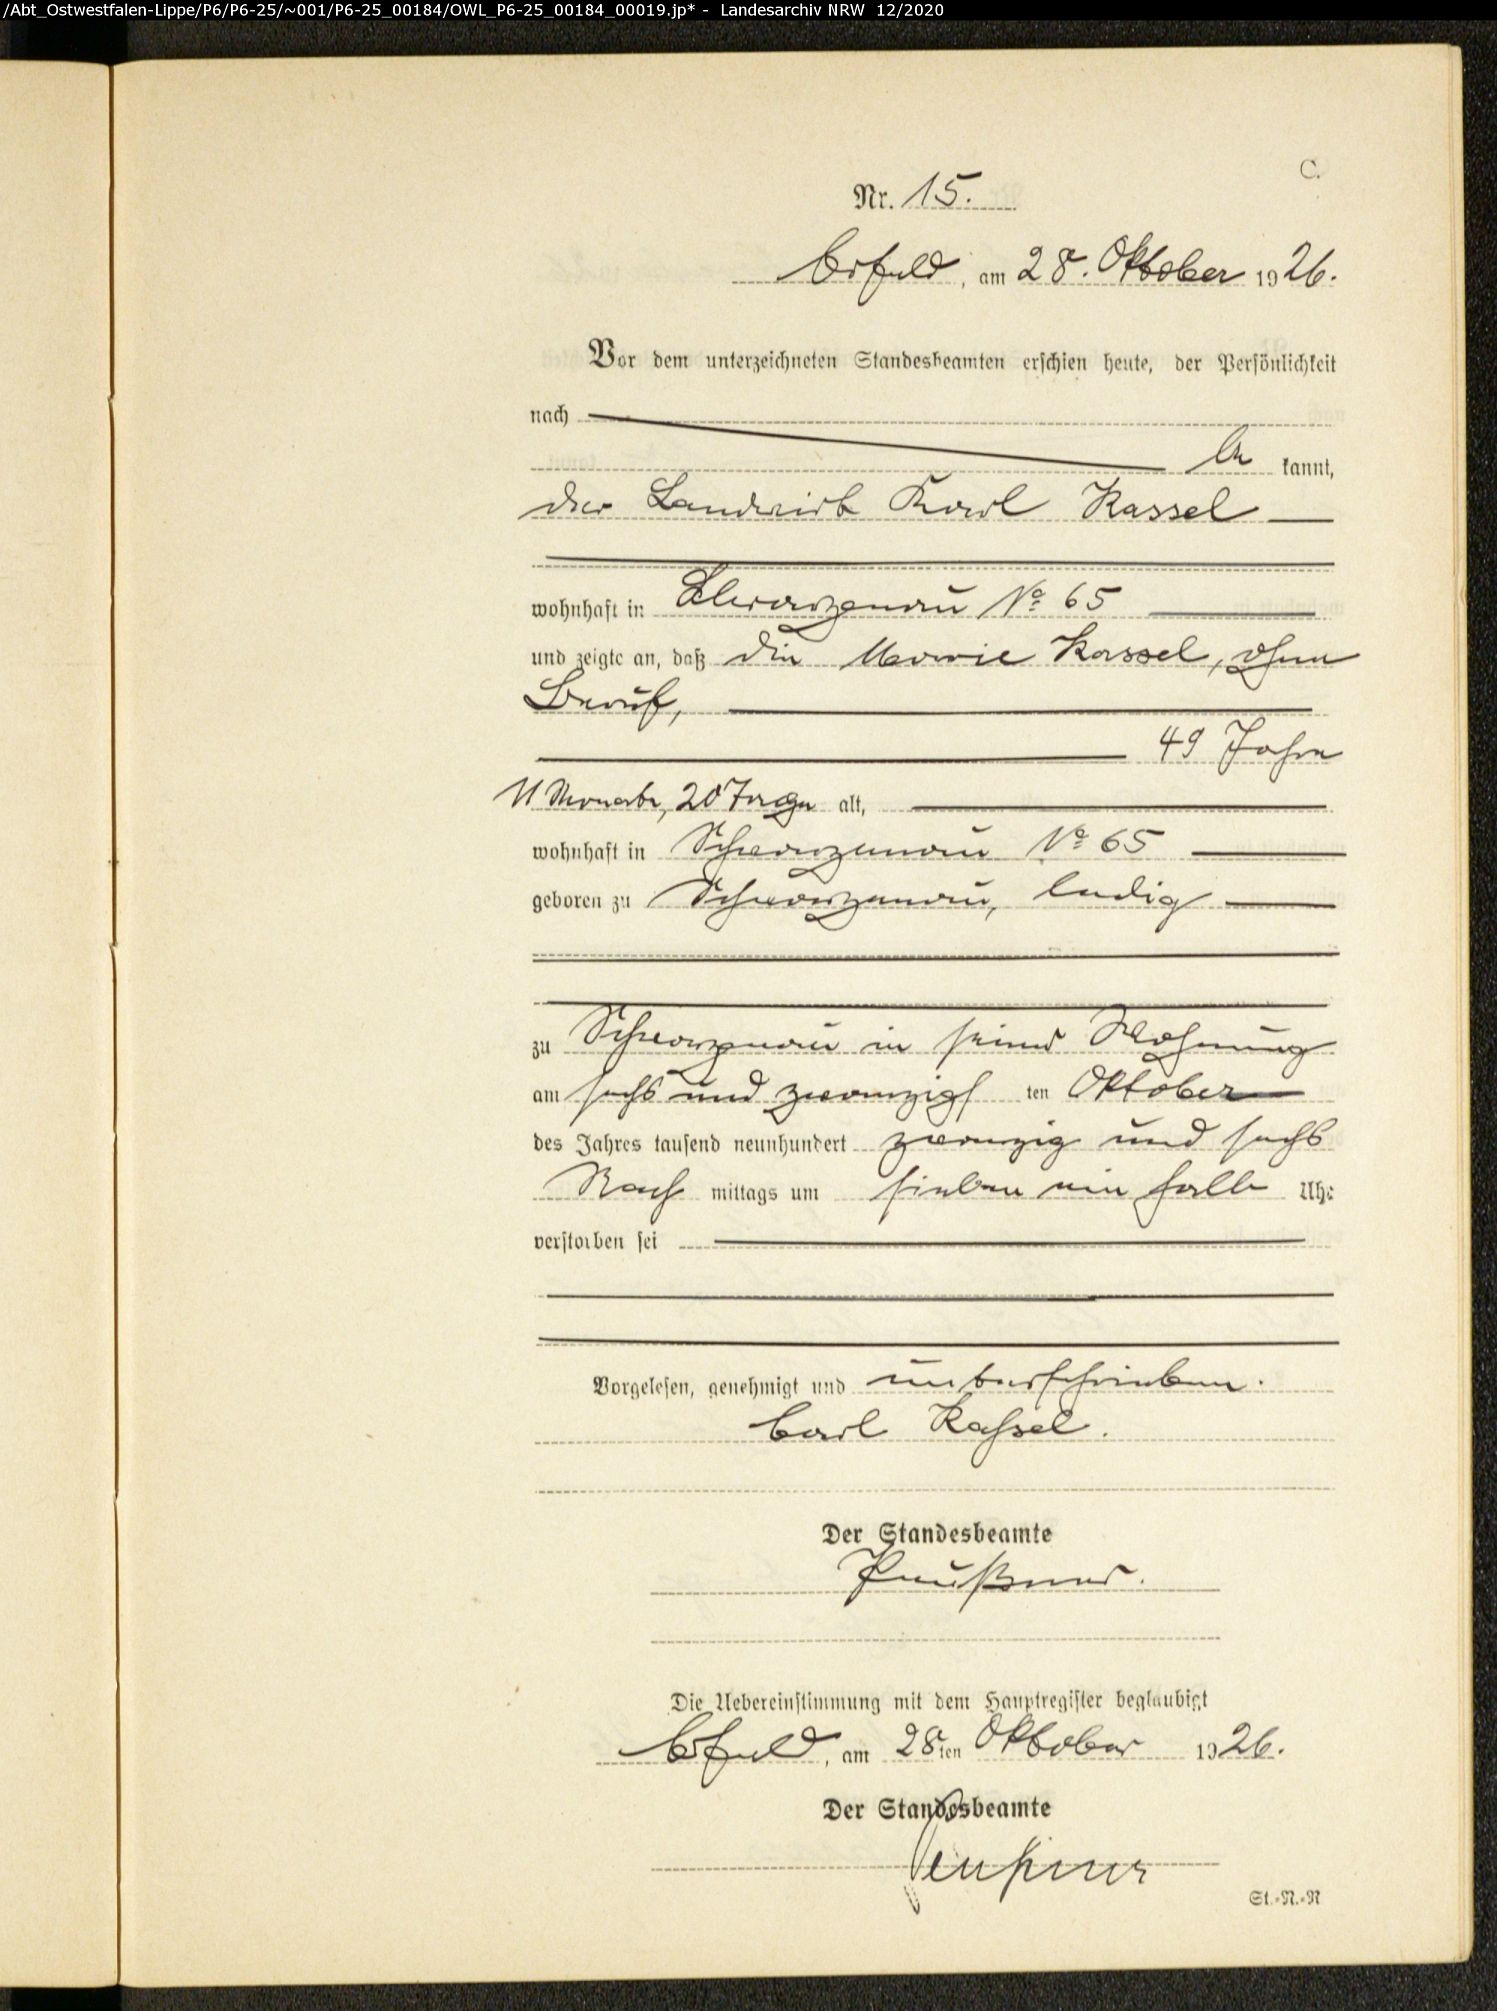 /Abt_Ostwestfalen-Lippe/P6/P6-25/~001/P6-25_00184/OWL_P6-25_00184_00019.jp* - Landesarchiv NRW 12/2020
C.
Nr. 15.
am 28. Oktober 1926.
Vor dem unterzeichneten Standesbeamten erschien heute, der Persönlichkeit
nach
be kannt,
der Landwirt Karl Kassel
wohnhaft in Schwarzenau No 65
und zeigte an, daß die Marie Kassel, ohne
Beruf,
49 Jahre
11 Monate, 20 Tage alt,
wohnhaft in Schwarzenau No 65
geboren zu Schwarzenau, ledig
zu Schwarzenau in seiner Wohnung
am sechs und zwanzigs ten Oktober
des Jahres tausend neunhundert zwanzig und sechs
Nach mittags um sieben ein halb Uhr
verstorben sei
Vorgelesen, genehmigt und unterschrieben.
Carl Kassel.
Der Standesbeamte
Preußner.
Die Uebereinstimmung mit dem Hauptregister beglaubigt
am 28ten Oktober 1926.
Der Standesbeamte
Preußner
St.-N.-N